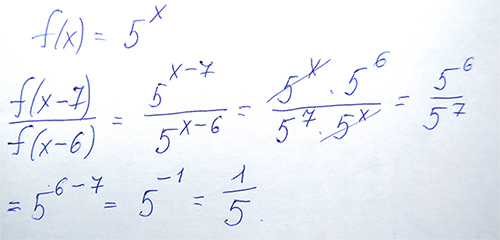 f(x) = 5^x
f(x-7)/f(x-6) = 5^(x-7)/5^(x-6) = (5^x · 5^6)/(5^7 · 5^x) = 5^6/5^7
= 5^(6-7) = 5^(-1) = 1/5